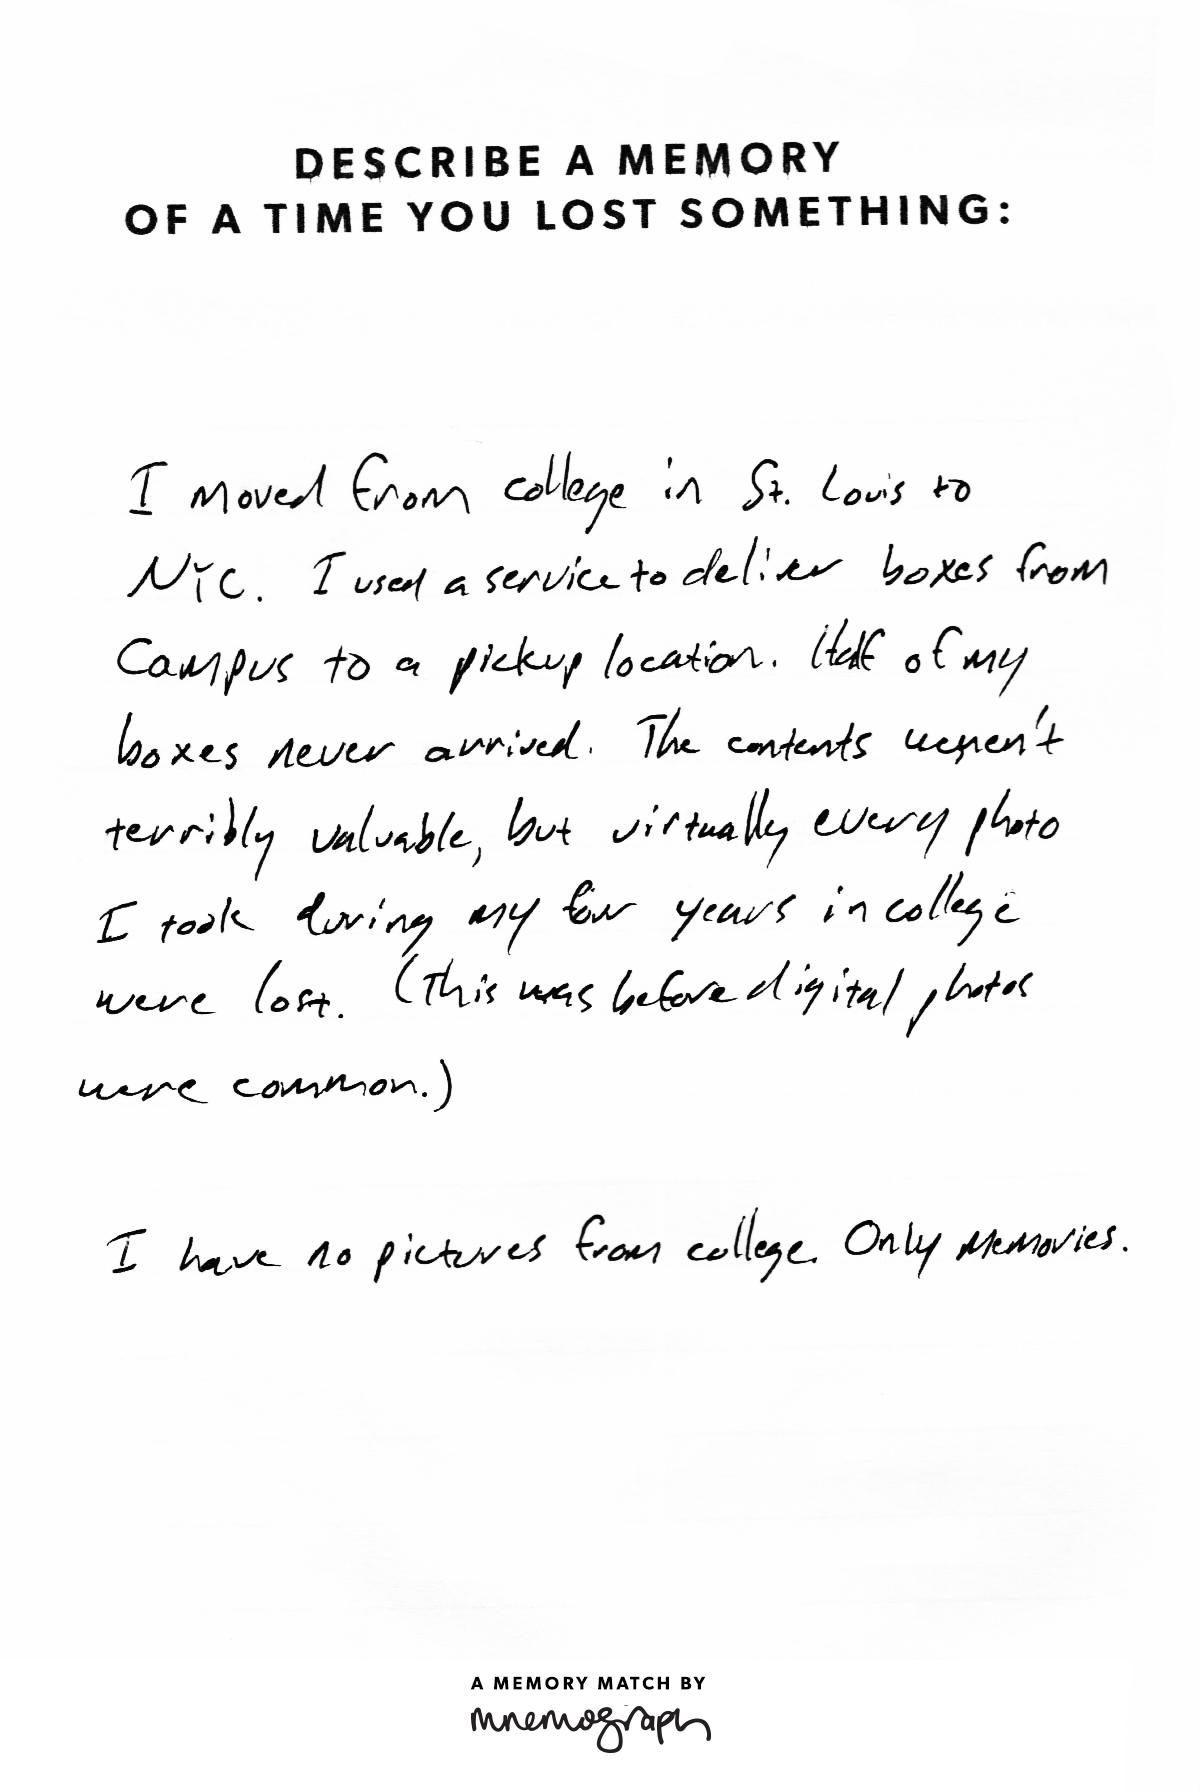 DESCRIBE A MEMORY
OF A TIME YOU LOST SOMETHING:
I moved from college in St. Louis to
NYC. I used a service to deliver boxes from
Campus to a pickup location. Half of my
boxes never arrived. The contents weren't
terribly valuable, but virtually every photo
I took during my four years in college
were lost. (This was before digital photos
were common.)
I have no pictures from college. Only memories.
A MEMORY MATCH BY
mnemograph